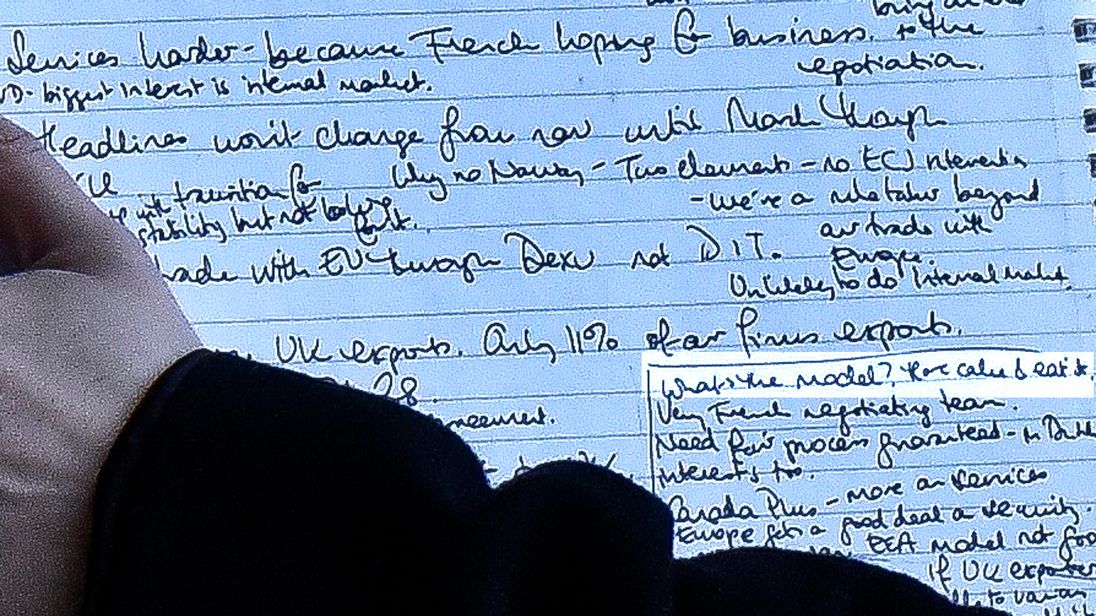 bring
Services harder - because French hoping for business. to the
negotiation.
biggest interest is internal market.
Headlines won't change from now until March though
Why no Norway - Two elements - no ECJ intervention
transition for
- we're a rule taker beyond
stability but not
our trade with
Europe.
trade with EU through Dexu not DIT.
Unlikely to do internal market.
UK exports. Only 11% of our firms exports.
28.
What's the model? Have cake & eat it.
Very French negotiating team.
Need fair process guaranteed - in
interests too.
Canada Plus - more on services
Europe gets a good deal on security.
EEA model not
If UK
to various